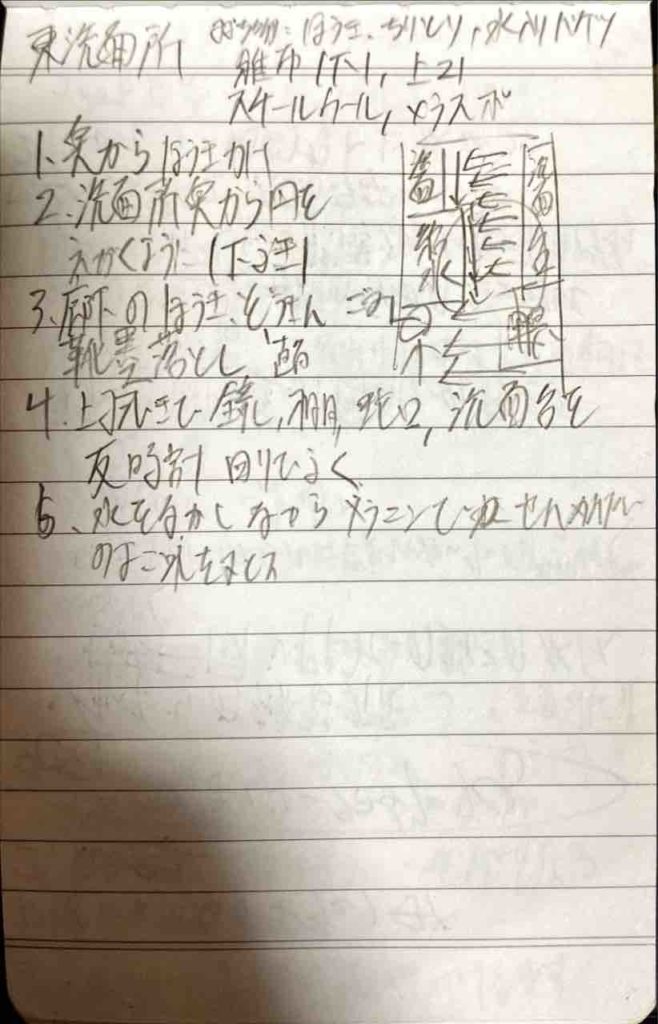 東洗面所 持ち物:ほうき、ちりとり、水入りバケツ
雑巾(下1, 上2)
スチールウール, メラスポ
1、奥からほうきかけ
2、洗面所奥から円を
えがくように(下ぶき)
3、廊下のほうき、ぞうきん
靴墨落とし
4、上拭きで鏡, 棚, 蛇口, 洗面台を
反時計回りでふく
5、水をながしながらメラニンで
のよごれをおとす
洗面
洗面
給水